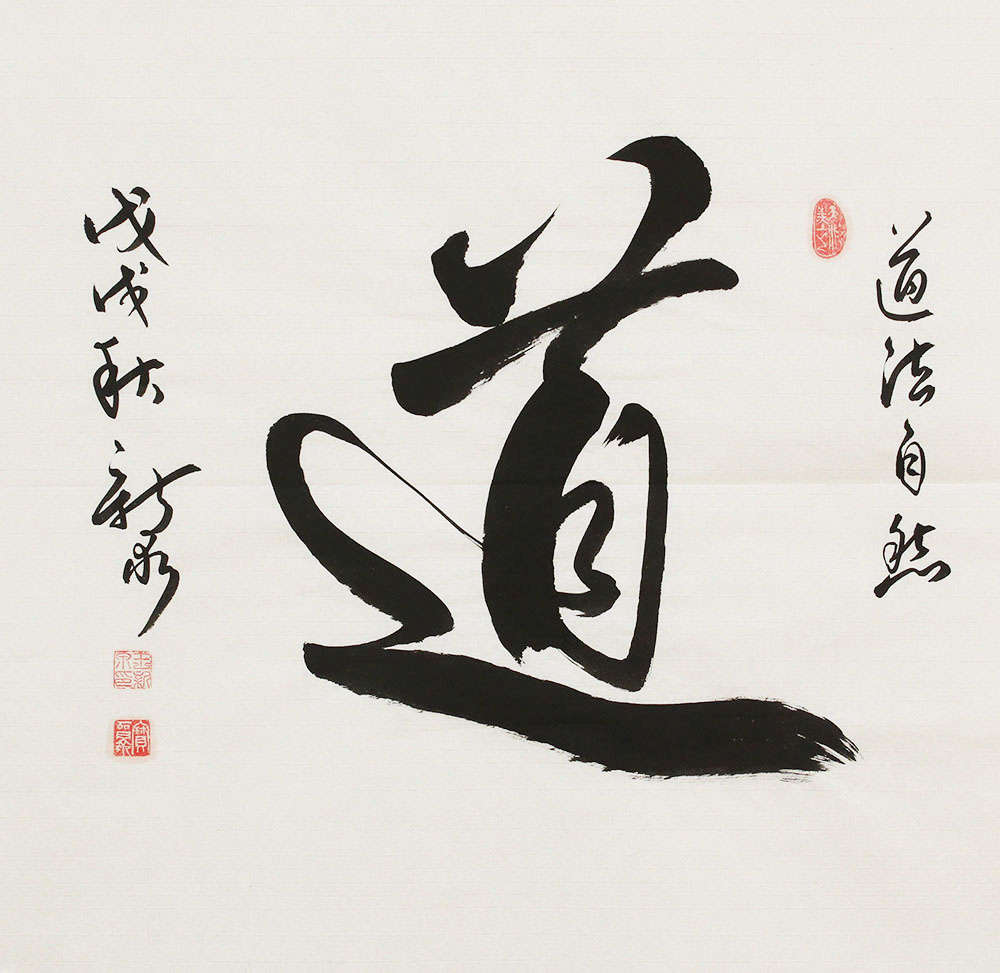 道法自然
道
戊戌秋新泉